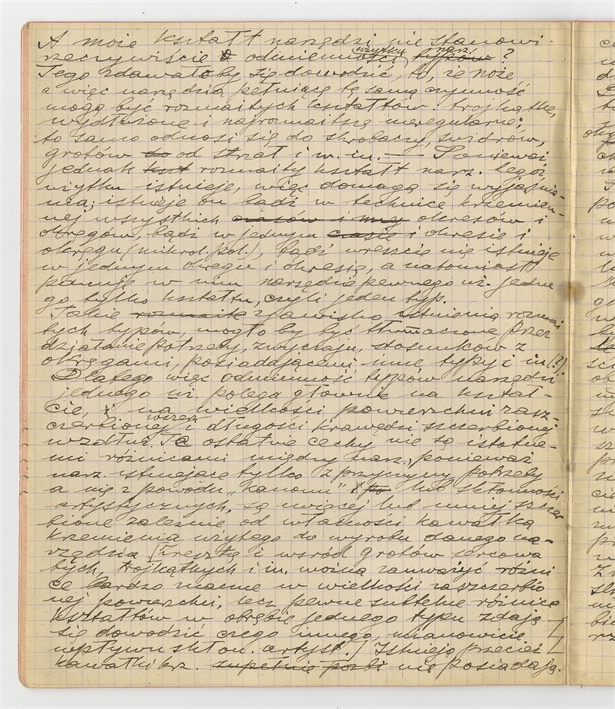 A może kształt narzędzi nie stanowi
rzeczywiście o odmienności użytku narz. typów?
Tego zdawałoby się dowodzić, to, że noże
a więc narzędzia pełniące tę samą czynność
mogą być rozmaitych kształtów: trójkątne,
wydłużone i najrozmaitszej nieregularne;
to samo odnosi się do skrobaczy, świdrów,
grotów to od strzał i w. in. — Ponieważ
jednak kszt rozmaity kształt narz. tegoż
użytku istnieje, więc domaga się wyjaśnie-
nia; istnieje on bądź w technice krzemien-
nej wszystkich czasów i my okresów i
okręgów, bądź w jednym czasie i okresie i
okręgu (mikrol. pol.), bądź wreszcie nie istnieje
w jednym okręgu i okresie, a natomiast
panuje w nim narzędzie pewnego uż. jedne-
go tylko kształtu, czyli jeden typ.
Takie rozmaite zjawisko istnienia rozmai-
tych typów, mogło by być tłumaczone przez
działanie potrzeby, zwyczaju, stosunków z
okręgami, posiadającemi inne typy i in. (?)
Dlatego więc odmienność typów narzędzi
jednego uż. polega głównie na kształ-
cie, i na wielkości powierzchni zasz-
czerbionej i długości krawędzi szczerbionej
wzdłuż, te ostatnie cechy nie są istotne-
mi różnicami między narz., ponieważ
narz. istniejące tylko z przyczyny potrzeby
a nie z powodu „kanonu” i po lub skłonności
artystycznych, są więcej lub mniej szczer-
bione zależnie od własności kawałka
krzemienia użytego do wyrobu danego na-
rzędzia (zresztą i wśród grotów sercowa-
tych, trójkątnych i in. można zauważyć różni-
ce bardzo znaczne w wielkości zaszczerbio-
nej powierzchni, lecz pewne subtelne różnice
kształtów w obrębie jednego typu zdają
się dowodzić czego innego, mianowicie:
wpływu skłon. artyst.) Istnieją przecież
kawałki krz. zupełnie nie posiadają